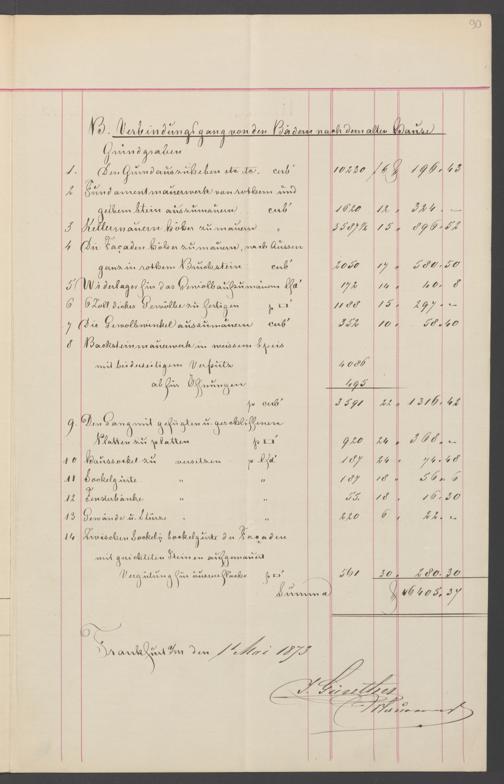 90
NB. Verbindungsgang von den Bädern nach dem alten Hause
Grundgraben
1. Den Grund auszuheben etc. etc. cub' 10220 / 6 f 196.43
2 Fundamentmauerwerk von rothem und
gelbem Stein auszumauern cub' 1620 12 " 324.—
3 Kellermauern höher zu mauern " 3587 15 " 896.52
4 Die Façaden höher zu mauern, nach Aussen
ganz in rothem Bruchstein cub' 2050 17 " 580.50
5 Widerlager für das Gewölb aufzumauern lfd' 172 14 " 40.8
6 6 Zoll dickes Gewölbe zu fertigen p □' 1188 15 " 297.—
7 Die Gewölbwinkel auszumauern cub' 352 10 " 58.40
8 Backsteinmauerwerk in weissem Speis
mit beiderseitigem Verputz 4086
ab für Öffnungen 495
p cub' 3591 22 " 1316.42
9. Den Gang mit gefugten u. geschliffenen
Platten zu platten p □' 920 24 " 368.—
10 Haussockel zu versetzen p lfd' 187 24 " 74.48
11 Sockelgurte " " 187 18 " 56.6
12 Fensterbänke " " 55 18 " 16.30
13 Gewände u. Stürze " " 220 6 " 22.—
14 Zwischen Sockel & Sockelgurte der Façaden
mit gerichteten Steinen aufgemauert
Vergütung für äussere Fläche p □' 561 30 " 280.30
Summa f 6405.37
Frankfurt a/m den 1t Mai 1873
J. Günther